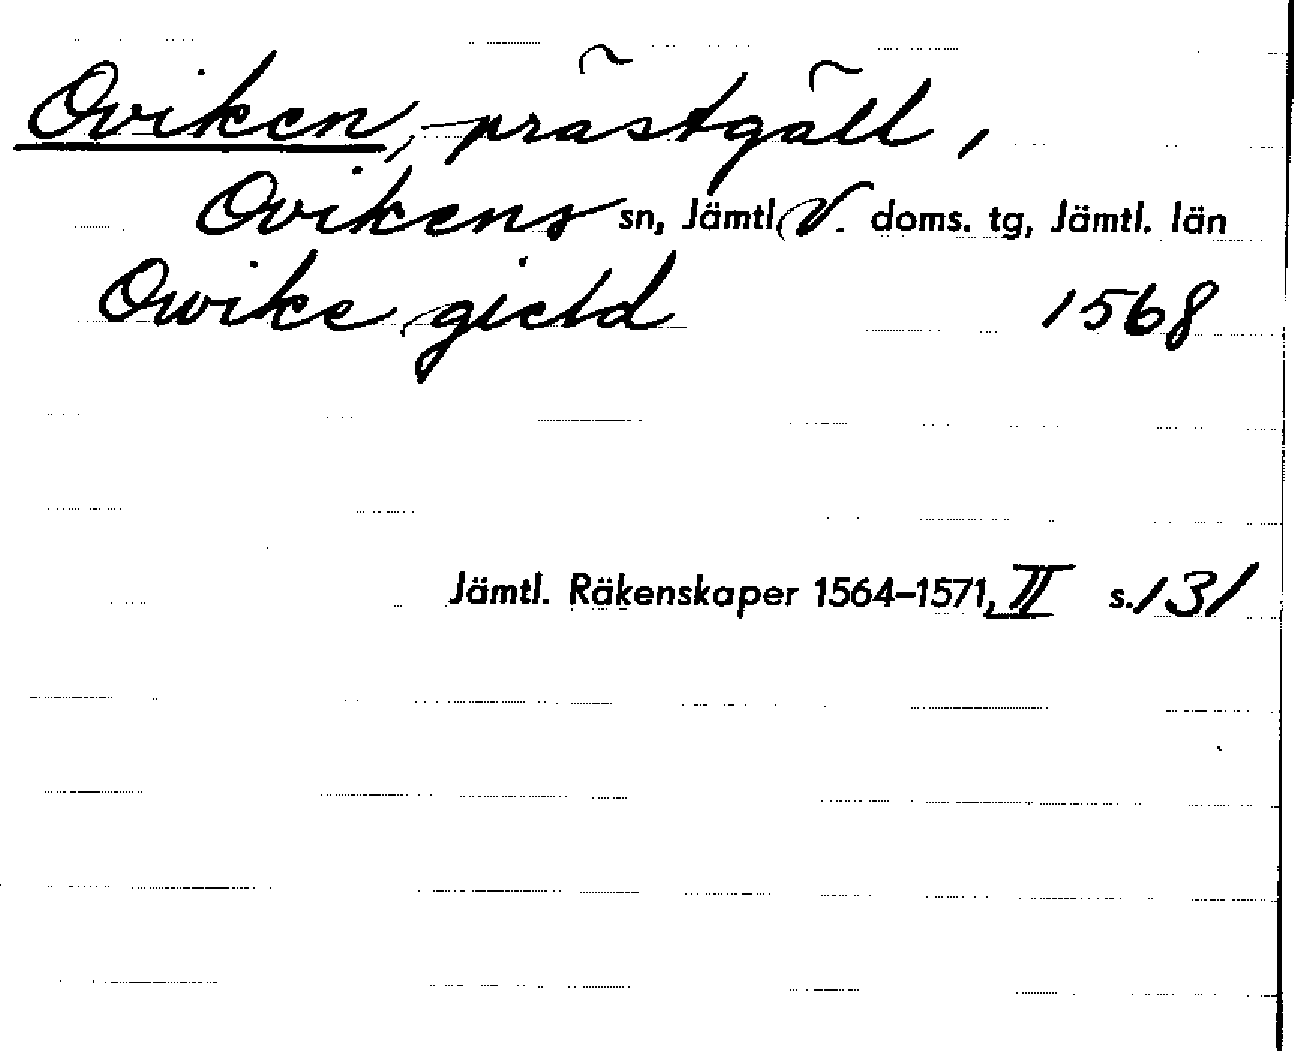 Oviken, prästgäll,
Ovikens sn, Jämtl. V. doms. tg, Jämtl. län
Owike gield 1568
Jämtl. Räkenskaper 1564–1571, II s. 131